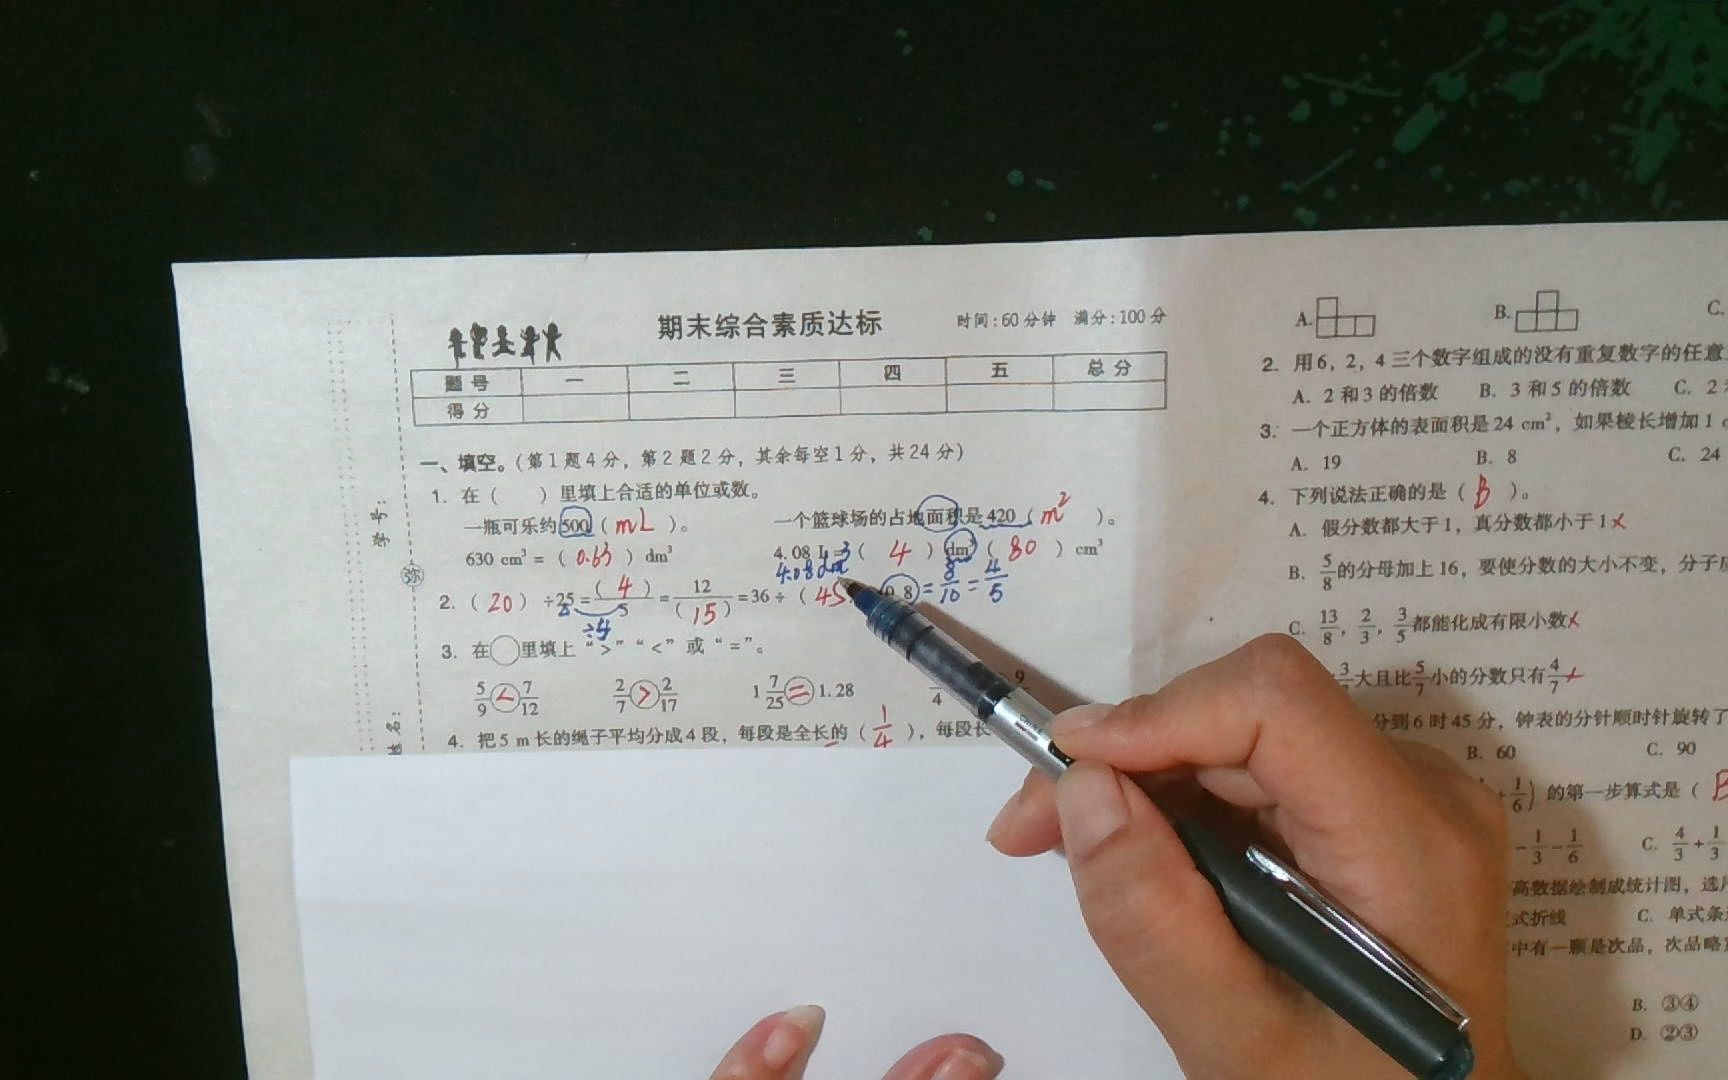 期末综合素质达标 时间:60分钟 满分:100分
题号 一 二 三 四 五 总分
得分
一、填空。(第1题4分,第2题2分,其余每空1分,共24分)
1. 在( )里填上合适的单位或数。
一瓶可乐约500(mL)。 一个篮球场的占地面积是420(m²)。
630 cm³=(0.63)dm³ 4.08 L=(4)dm³(80)cm³
4.08dm³
2.(20)÷25=(4)/5=12/(15)=36÷(45 0.8=8/10=4/5
÷4
3. 在○里填上“>”“<”或“=”。
5/9<7/12 2/7>2/17 1 7/25=1.28 4 9
4. 把5 m长的绳子平均分成4段,每段是全长的(1/4),每段长
学号:
弥
姓名:
A. B. C.
2. 用6,2,4三个数字组成的没有重复数字的任意
A. 2和3的倍数 B. 3和5的倍数 C. 2
3. 一个正方体的表面积是24 cm²,如果棱长增加1
A. 19 B. 8 C. 24
4. 下列说法正确的是(B)。
A. 假分数都大于1,真分数都小于1×
B. 5/8的分母加上16,要使分数的大小不变,分子
C. 13/8,2/3,3/5都能化成有限小数×
3/7大且比5/7小的分数只有4/7×
分到6时45分,钟表的分针顺时针旋转了
B. 60 C. 90
+1/6)的第一步算式是(B
-1/3-1/6 C. 4/3+1/3
高数据绘制成统计图,选
式折线 C. 单式条
中有一颗是次品,次品略
B. ③④
D. ②③